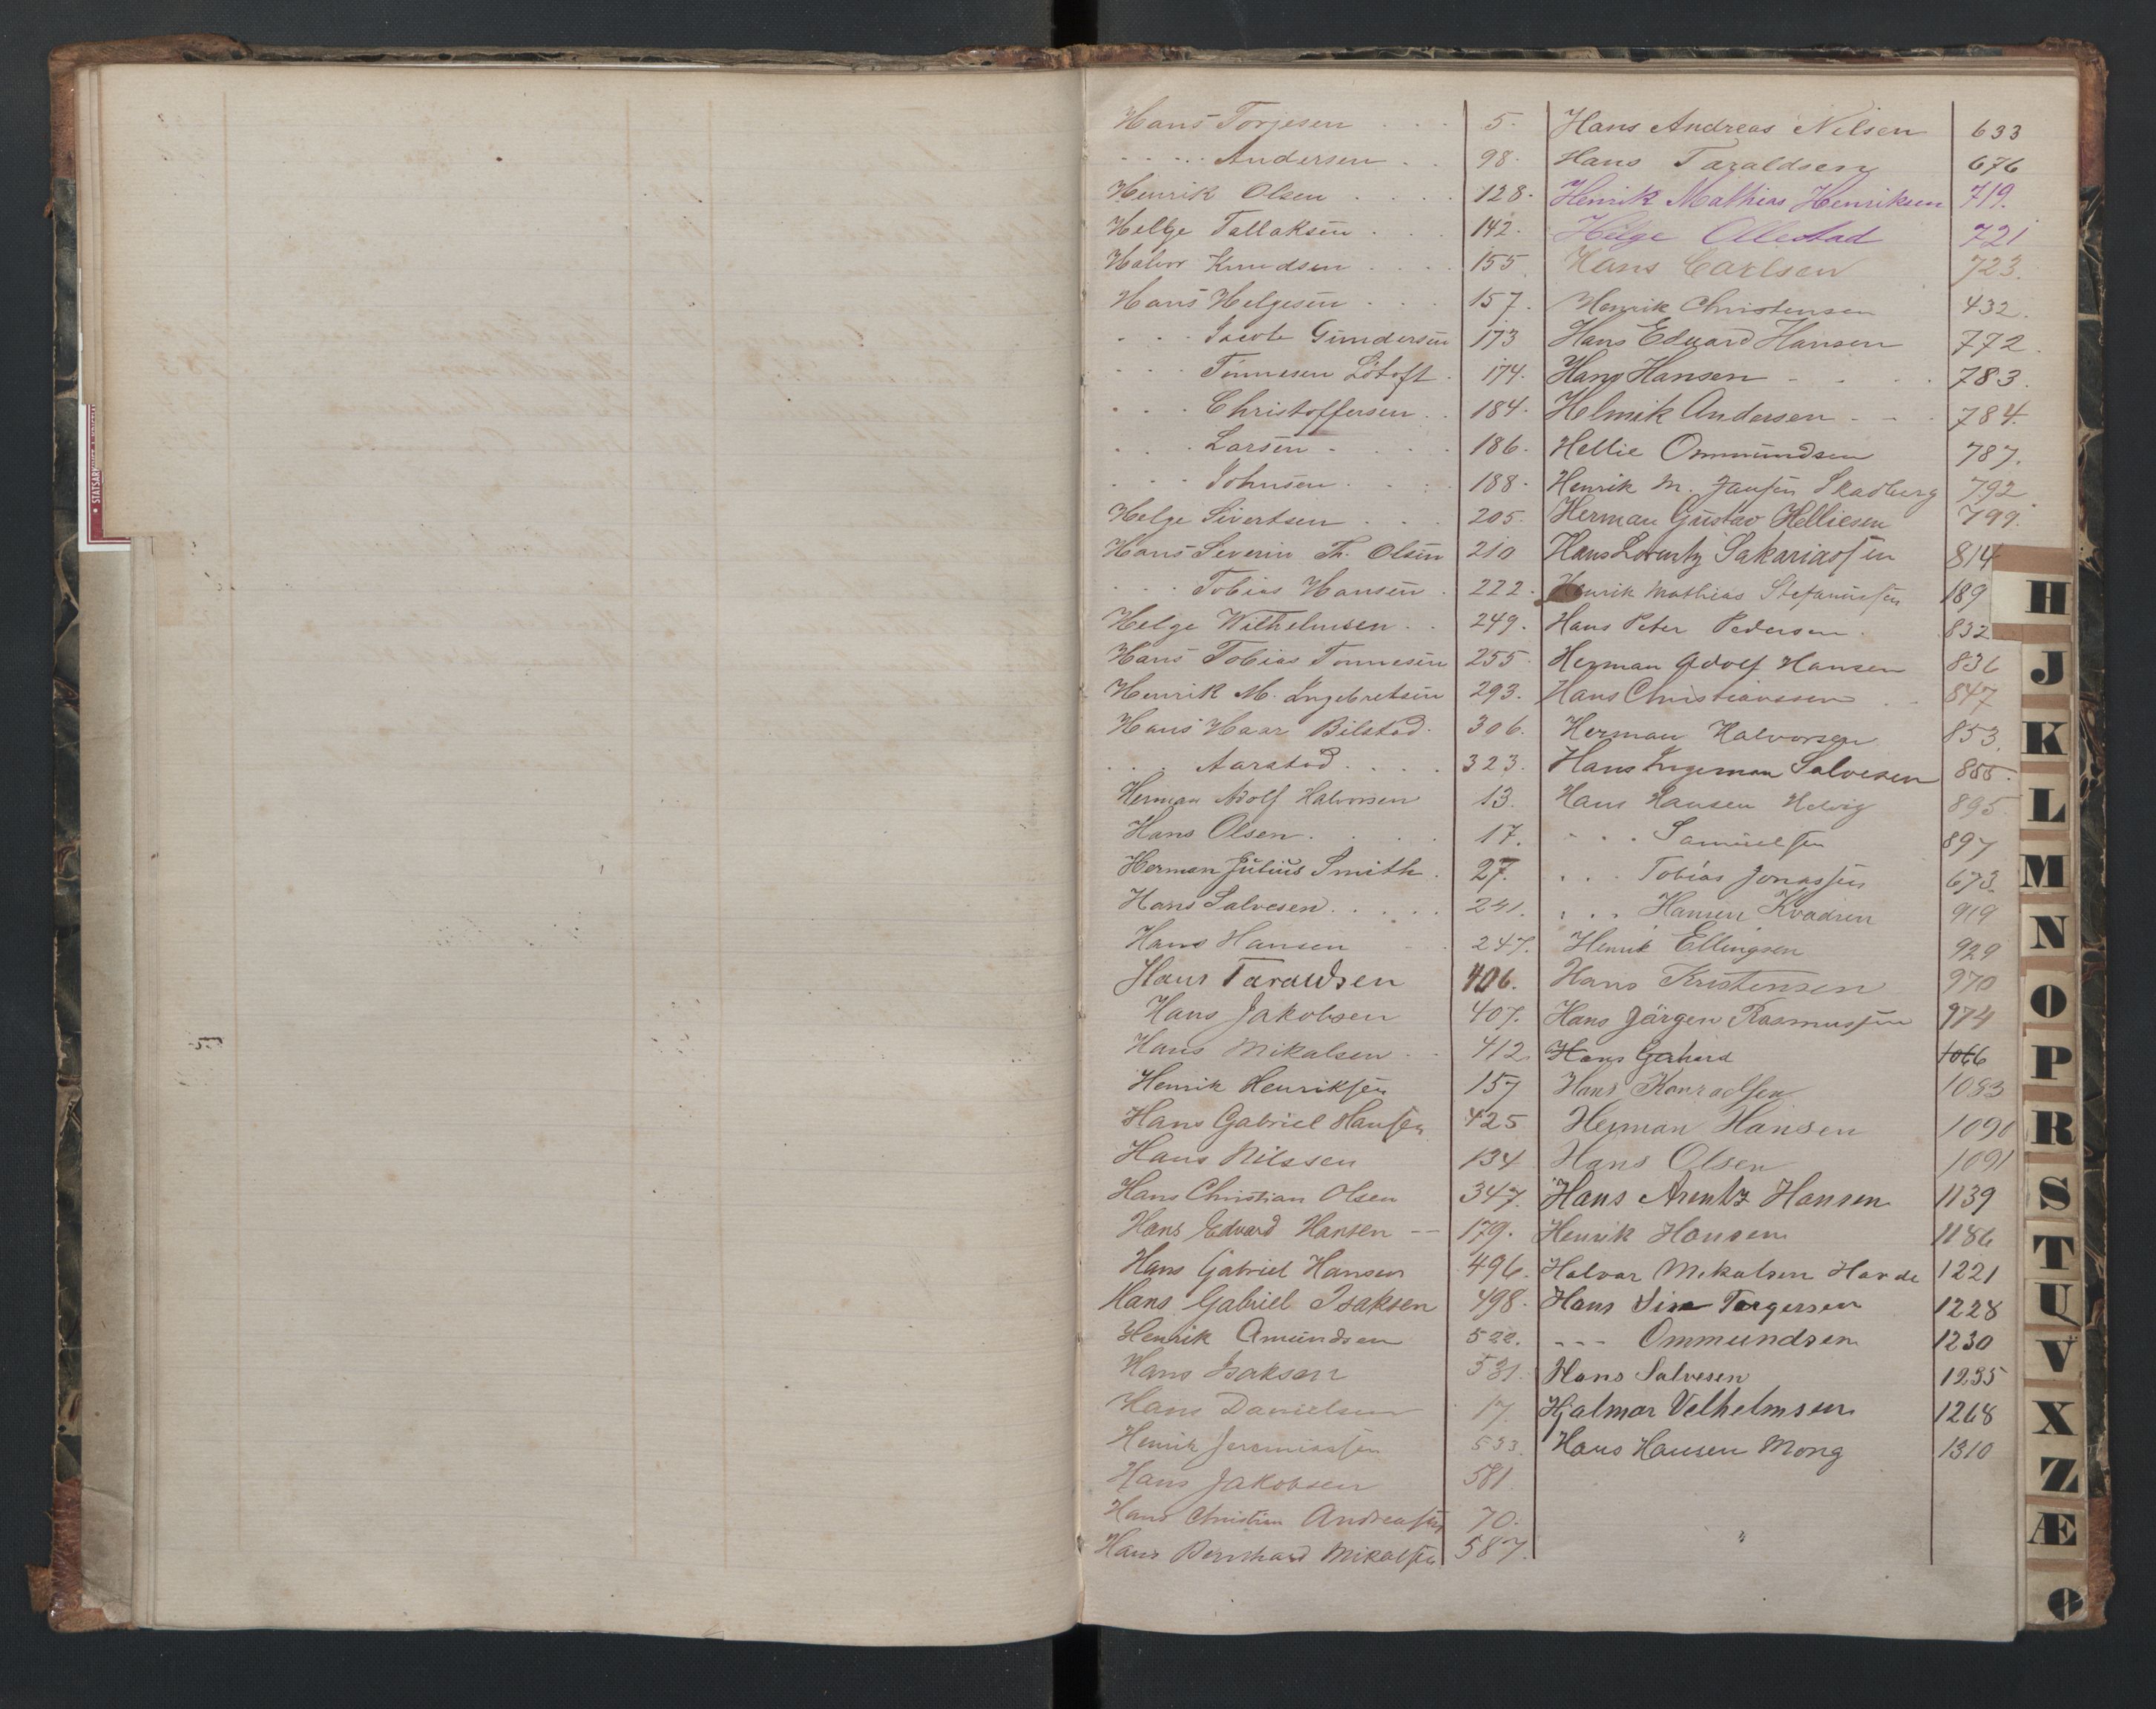 Hans Torjesen . . . 5.
. . . . . Andersen . . 98.
Henrik Olsen . . . . 128.
Helge Tallaksen . . . 142.
Halvor Knudsen . . . . 155
Hans Helgesen . . . 157.
. . . Jacob Gundersen 173
. . . Tönnesen Lötoft . 174.
. . . Christoffersen . . 184.
. . . Larsen . . . . 186.
. . . Johnsen . . . . 188.
Helge Sivertsen . . . 205.
Hans Severin Th. Olsen 210
. . . Tobias Hansen . 222.
Helge Wilhelmsen . . 249.
Hans Tobias Tonnesen 255.
Henrik M. Ingebretsen 293.
Hans Haar Bilstad. 306.
. . . Aarstad . . . . 323.
Herman Adolf Halvorsen 13.
Hans Olsen . . . . 17.
Herman Julius Smith . 27.
Hans Salvesen . . . . . 241.
Hans Hansen - . 247.
Hans Taraldsen 406.
Hans Jakobsen 407.
Hans Mikalsen . . 412
Henrik Henriksen 157
Hans Gabriel Hansen 425
Hans Nilssen 134
Hans Christian Olsen 347.
Hans Edvard Hansen -- 179.
Hans Gabriel Hansen 496.
Hans Gabriel Isaksen 498.
Henrik Amundsen 522.
Hans Isaksen 531.
Hans Danielsen 17.
Henrik Jeremiassen 533.
Hans Jakobsen 581.
Hans Christian Andreassen 70.
Hans Bernhard Mikalsen 587.
Hans Andreas Nilsen 633
Hans Taraldsen 676
Henrik Mathias Henriksen 719.
Helge Ollestad 721
Hans Carlsen 723.
Henrik Christensen 432.
Hans Eduard Hansen 772.
Hans Hansen - . . . 783.
Helmik Andersen - - . 784.
Hellie Ommundsen 787.
Henrik M. Jansen Skadberg 792
Herman Gustav Helliesen 799.
Hans Lorentz Sakariassen 814
Henrik Mathias Stefanussen 189
Hans Peter Pedersen . 832
Herman Adolf Hansen 836
Hans Christianssen . . 847
Herman Halvorsen 853.
Hans Ingeman Salvesen 855.
Hans Hansen Helvig 895.
. . . Samuelsen 897
. . . Tobias Jonassen 673.
. . . Hansen Kvadsen 919
Henrik Ellingsen 929
Hans Kristensen 970
Hans Järgen Rasmussen 974
Hans Gerhard 1066
Hans Konradsen 1083
Herman Hansen 1090
Hans Olsen 1091
Hans Arentz Hansen 1139
Henrik Hansen 1186
Halvor Mikalsen Havde 1221
Hans Sim Torgersen 1228
- - - Ommundsen 1230
Hans Salvesen 1235
Hjalmar Velhelmsen 1268
Hans Hansen Mong 1310
"
H
J
K
L
M
N
O
P
R
S
T
U
V
X
Z
Æ
Ø